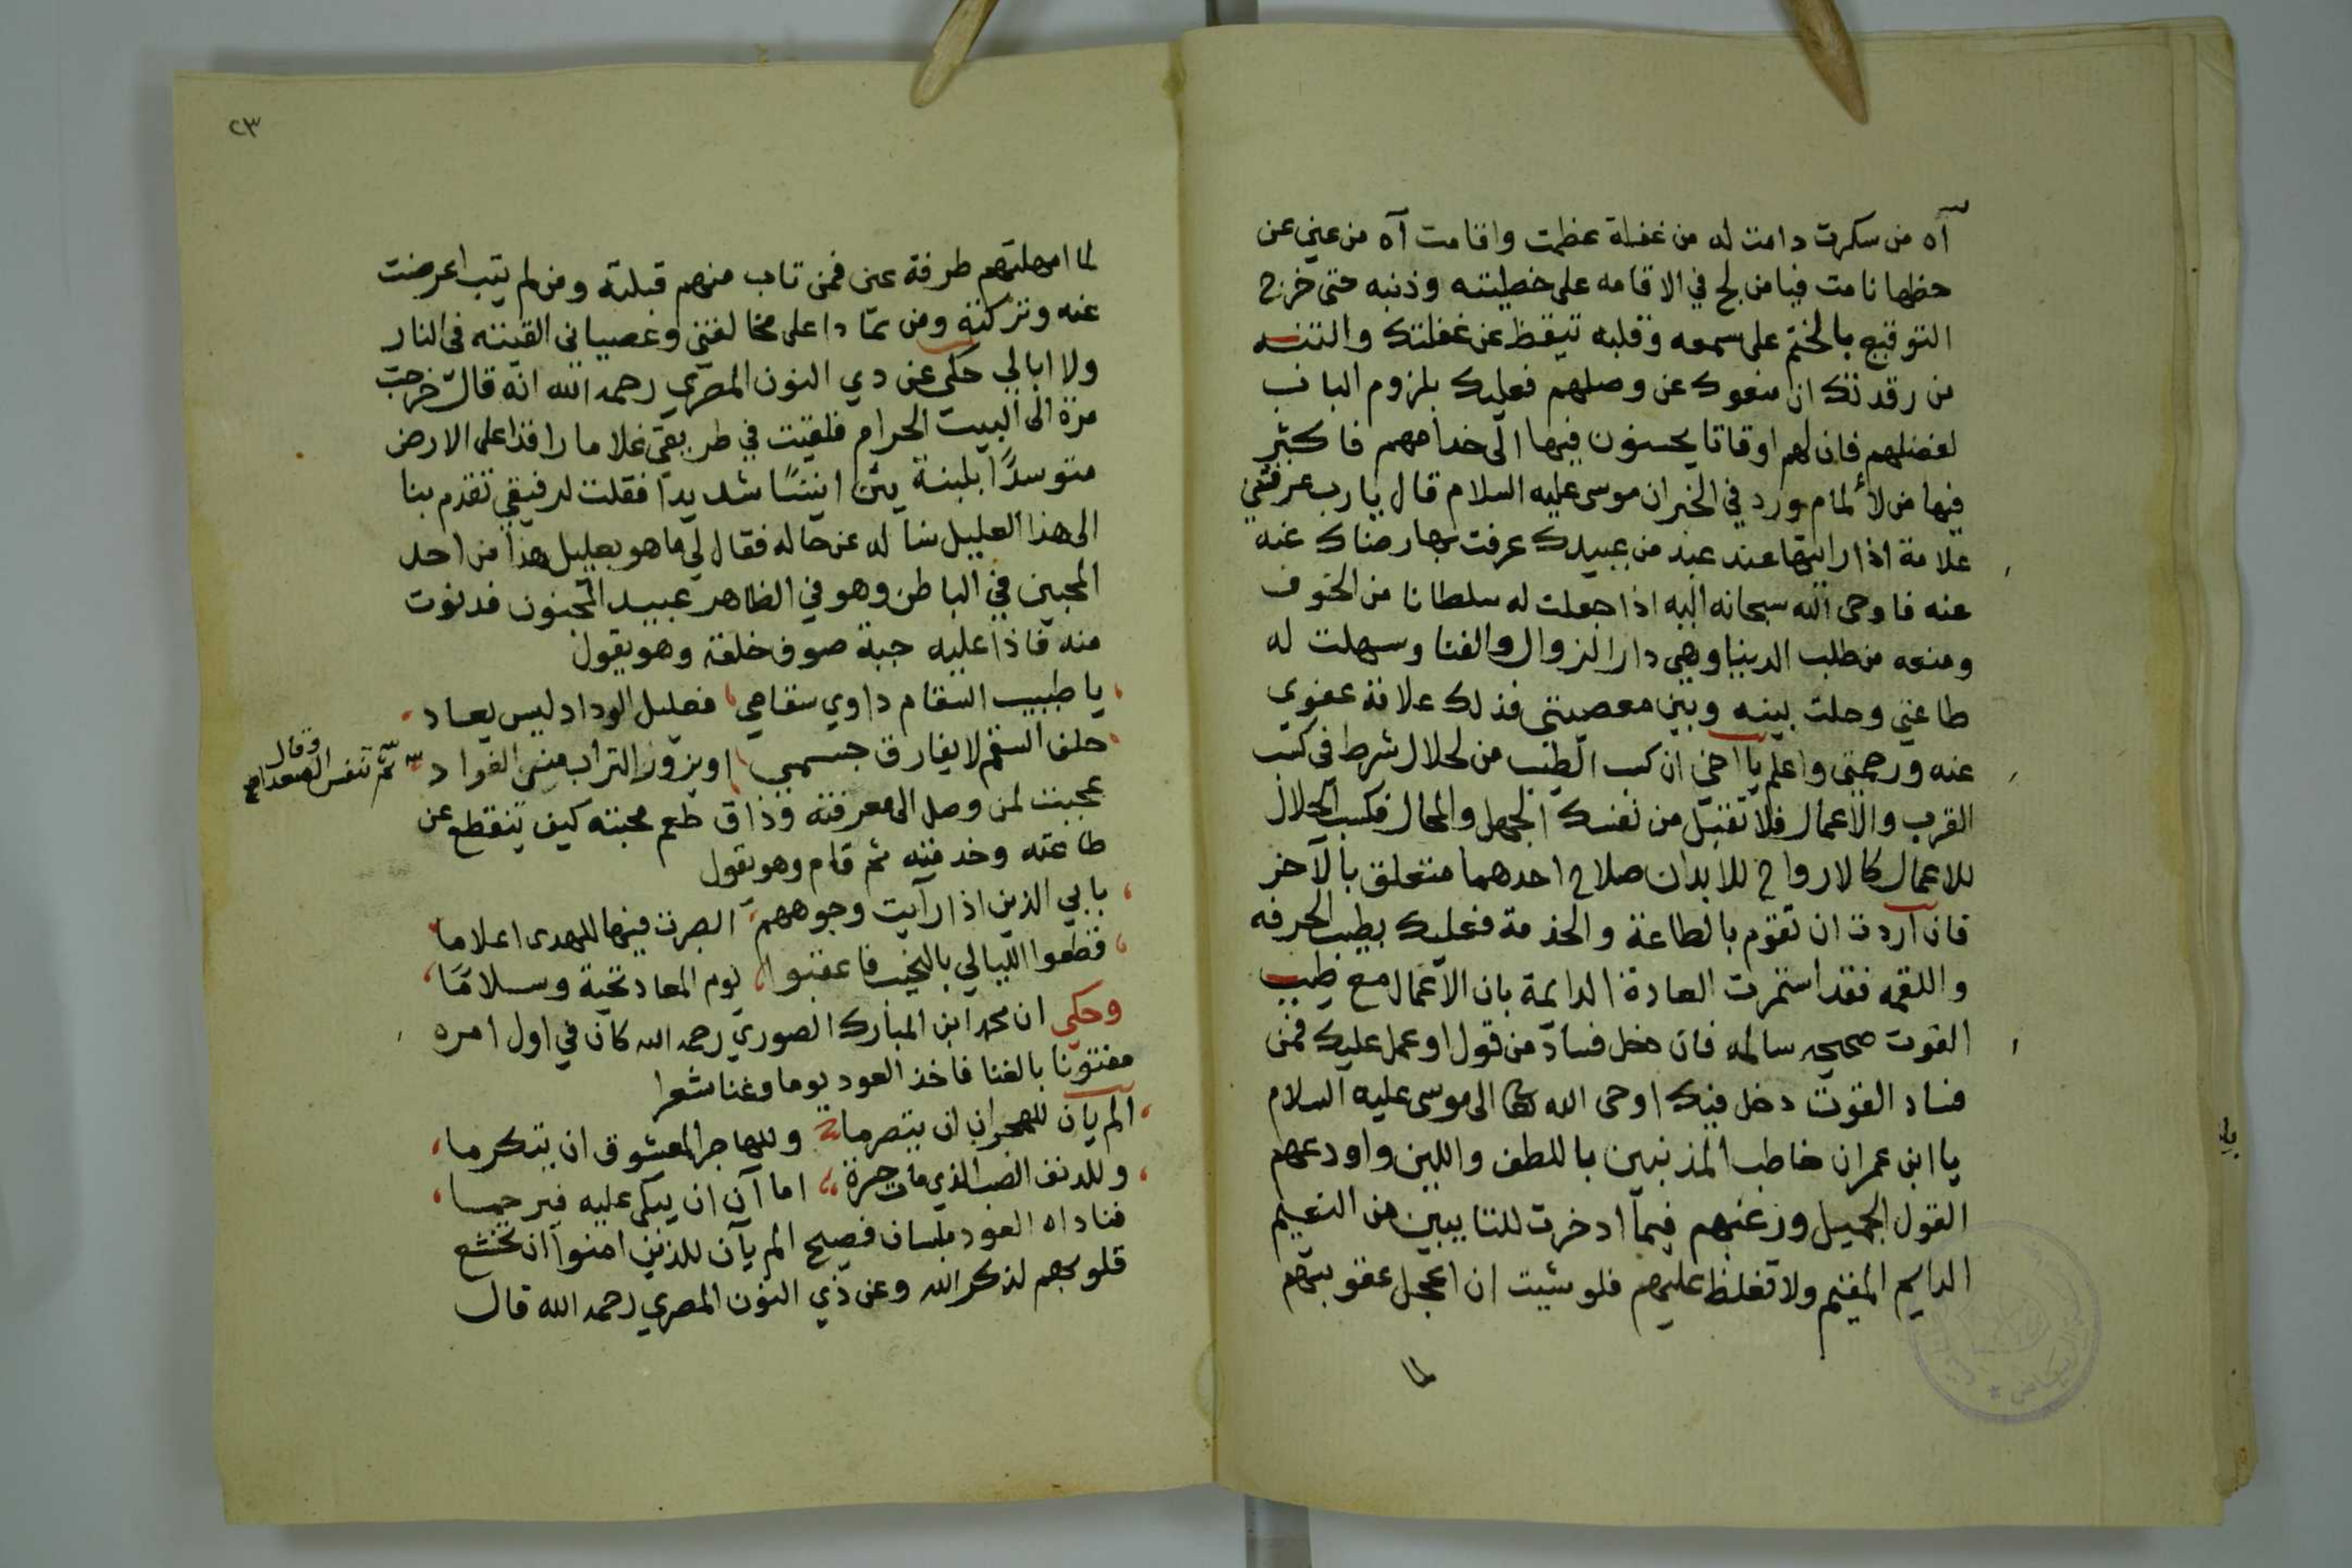 آه من سكرت دامت له من غفلة عظمت واقامت آه من عين عن
حظها نامت فيا من لج في الاقامه على خطيئته وذنبه حتى خرج
التوقيع بالختم على سمعه وقلبه تيقظ عن غفلتك والتنبه
من رقدتك ان منعوك عن وصلهم فعليك بلزوم الباب
لفضلهم فان لهم اوقاتا يحسنون فيها الى خدامهم فاكثر
فيها من الألمام ورد في الخبر ان موسى عليه السلام قال يا رب عرفني
علامة اذا رايتها عند عبد من عبيدك عرفت بها رضاك عنه
عنه فاوحى الله سبحانه اليه اذا جعلت له سلطانا من الخوف
ومنعه من طلب الدنيا وهي دار الزوال والفنا وسهلت له
طاعتي وحلت بينه وبين معصيتي فذلك علامة عفوي
عنه ورحمتي واعلم يا اخي ان كسب الطيب من لحلال شرط في كسب
القرب والاعمال فلا تقبل من نفسك الجهل والمحال فكسب الحلال
للاعمال كالارواح للابدان صلاح احدهما متعلق بالآخر
فان اردت ان تقوم بالطاعة والخدمة فعليك بطيب الحرفه
واللقمه فقد استمرت العادة الدايمة بان الاعمال مع طيب
القوت صحيحه سالمه فان دخل فساد من قول او عمل عليك فمن
فساد القوت دخل فيك اوحى الله تعالى الى موسى عليه السلام
يا ابن عمران خاطب المذنبين باللطف واللين واودعهم
القول الجميل ورغبهم فيما ادخرت للتايبين من النعيم
الدايم المقيم ولا تغلظ عليهم فلو شيت ان اعجل عقوبتهم
لما
٢٣
لما امهلتهم طرفة عين فمن تاب منهم قبلته ومن لم يتب اعرضت
عنه وتركته ومن تمادا على مخالفتي وعصياني القيته في النار
ولا ابالي حكى عن دي النون المصري رحمه الله انه قال خرجت
مرة الى البيت الحرام فلقيت في طريقي غلاما راقدا على الارض
متوسدا بلبنة يئن انينًا شديدًا فقلت لرفيقي تقدم بنا
الى هذا العليل نسأله عن حاله فقال لي ما هو بعليل هذا من احد
المحبين في الباطن وهو في الظاهر عبيد المجنون فدنوت
منه فاذا عليه جبة صوف خلقة وهو يقول
يا طبيب السقام داوي سقامي فعليل الوداد ليس يعاد
حلف السقم لا يفارق جسمي او يزور التراب مني الفواد ثم تنفس الصعدا وقال
عجبت لمن وصل الى معرفته وذاق طعم محبته كيف ينقطع عن
طاعته وخدمته ثم قام وهو يقول
بابي الذين اذا رآيت وجوههم ابصرت فيها للهدى اعلاما
قطعوا الليالي بالنحيب فاعقبوا يوم المعاد تحية وسلامًا
وحكي ان محمد ابن المبارك الصوري رحمه الله كان في اول امره
مفتونا بالغنا فاخذ العود يوما وغنا شعرا
الم يان للهجران ان يتصرما وللهاجر المعشوق ان يتكرما
وللدنف الصب الذي مات حسرة اما آن ان يبكى عليه فيرحما
فناداه العود بلسان فصيح الم يآن للذين امنوا ان تخشع
قلوبهم لذكر الله وعن ذي النون المصري رحمه الله قال